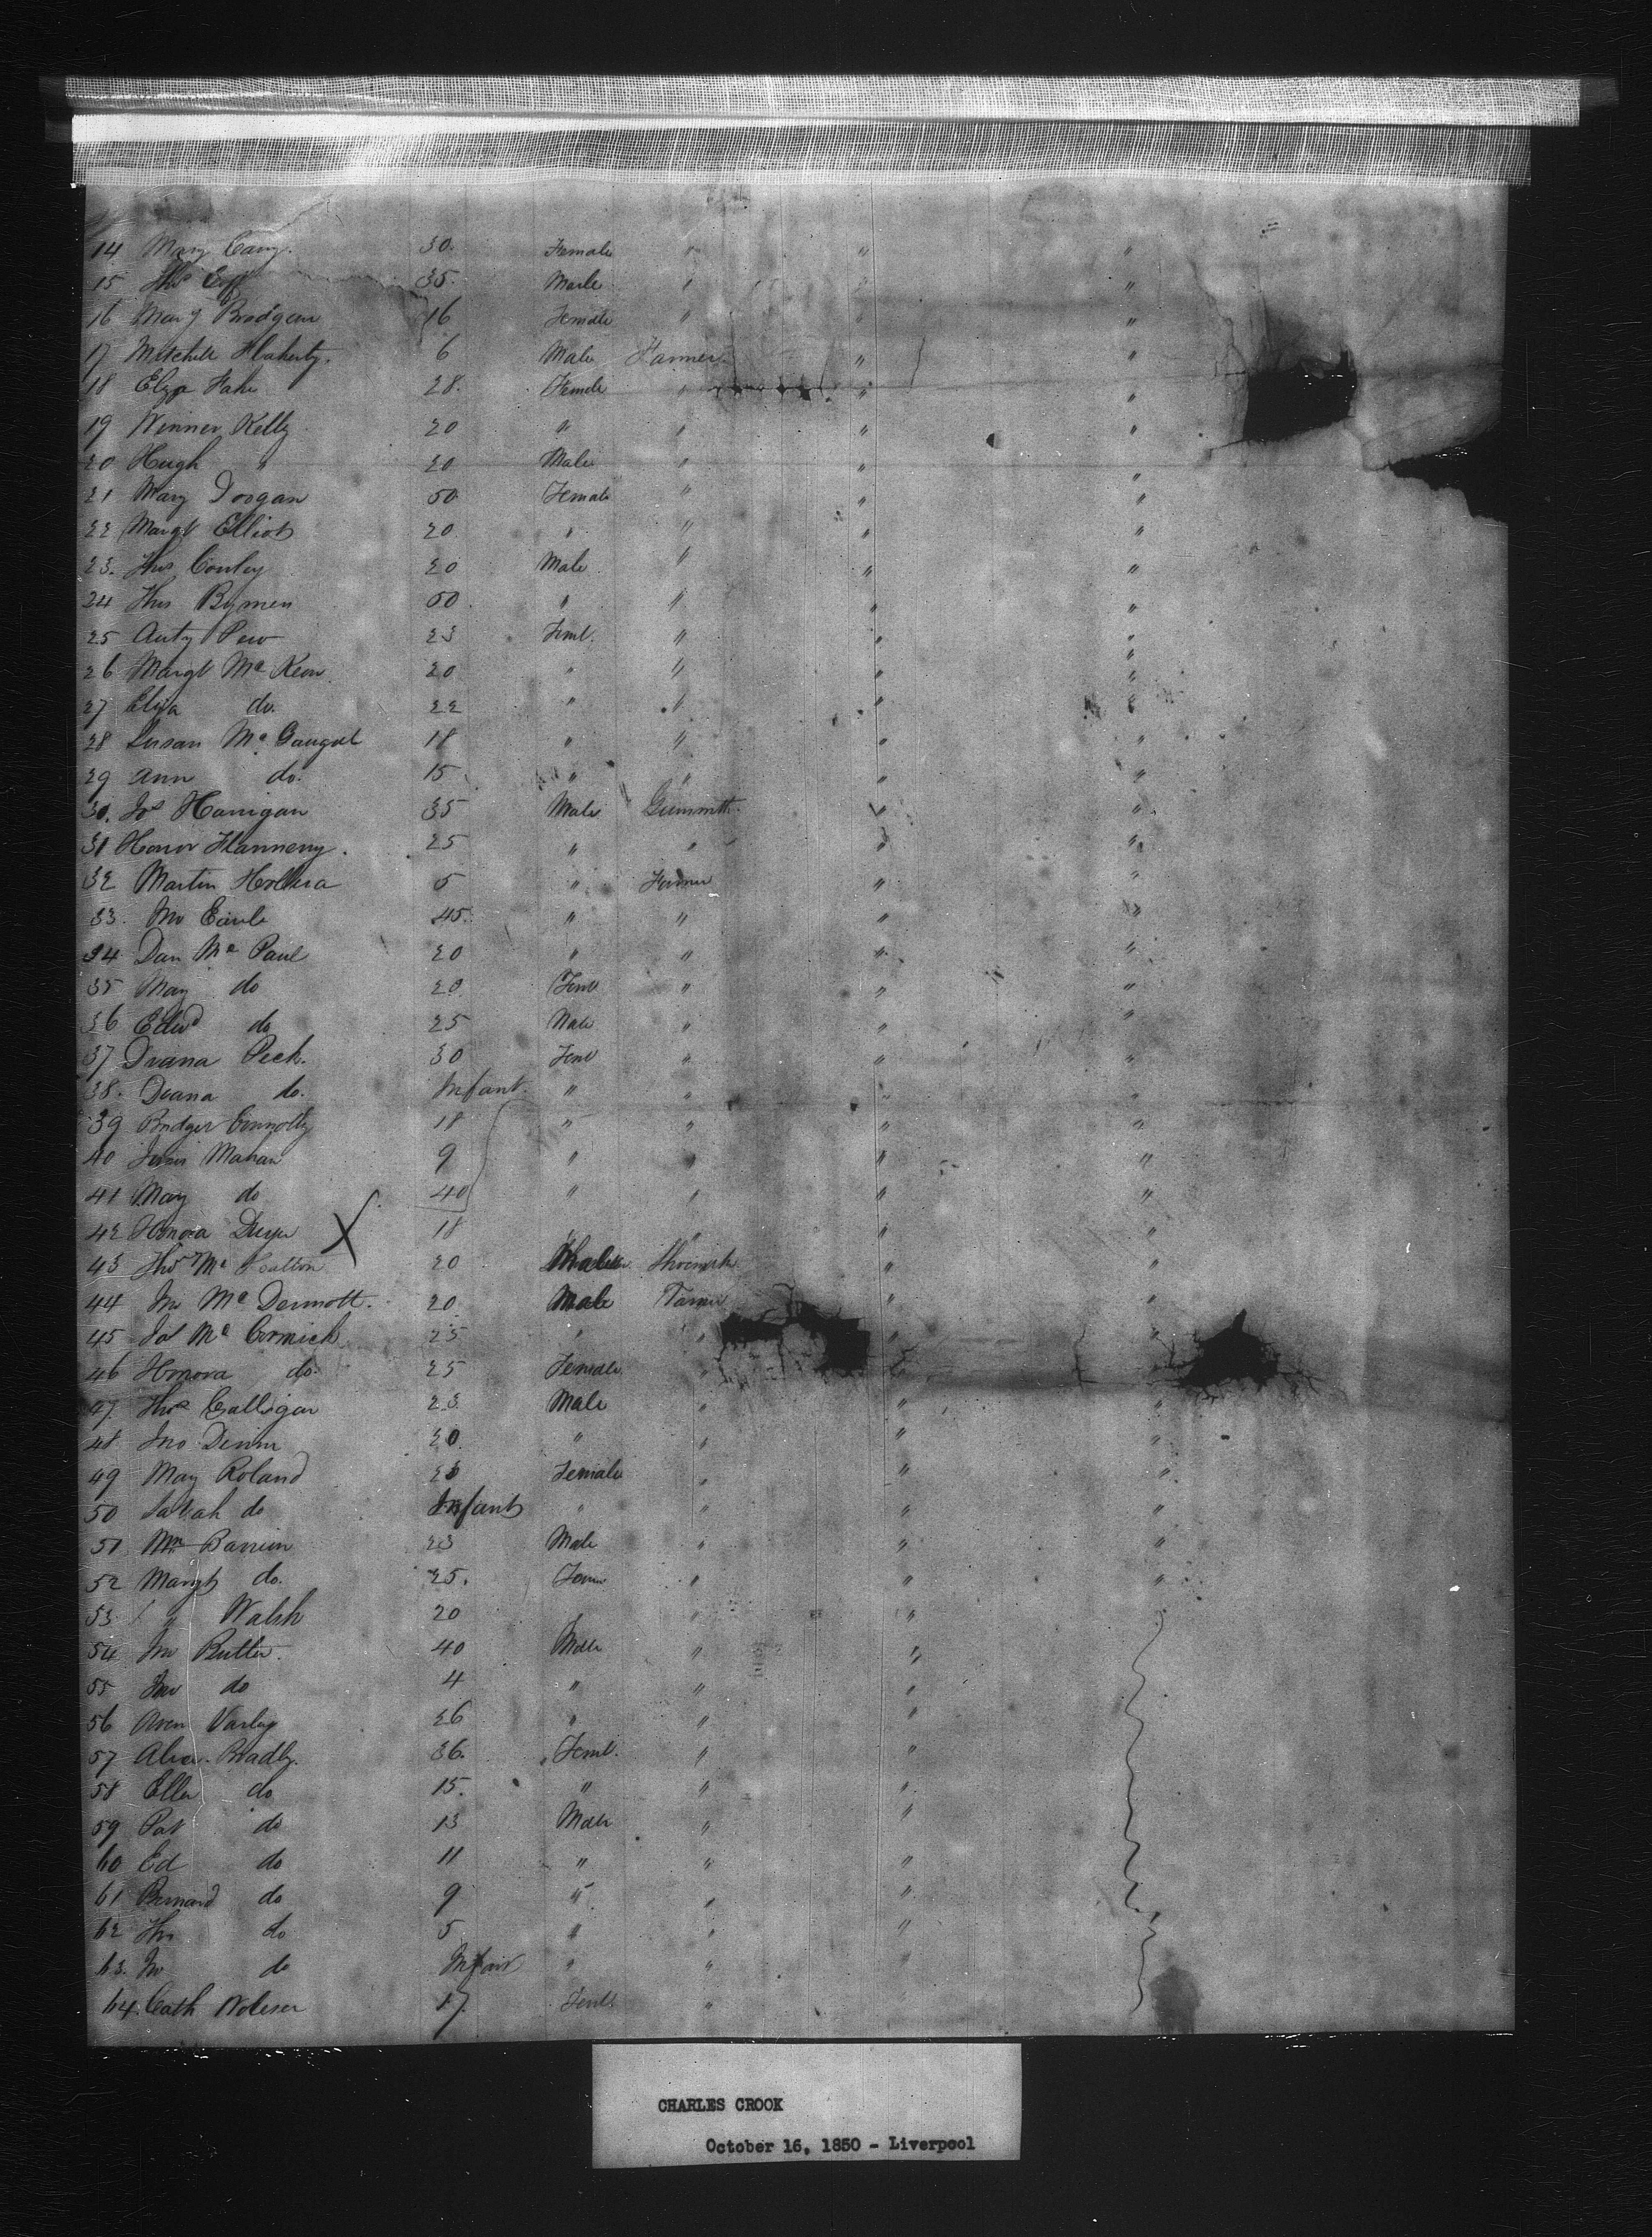 14 Mary Cary. 30. Female " " "
15 Thos 35. Male " " "
16 Mary Bradgeun 16 Female " " "
17 Mitchell Flaherty. 6 Male Farmer " "
18 Elza Fahe 28. Female " " "
19 Winner Kelly 20 " " " "
20 Hugh " 20 Male " "
21 Mary Dorgan 50 Female " " "
22 Margt Elliot 20 " " " "
23. Thos Conley 20 Male " " "
24 Thos Bymen 50 " " " "
25 Anty Pew 23 Feml. " " "
26 Margt Mc Keon 20 " " " "
27 Eliza do. 22 " " " "
28 Susan Mc Gaugal 18 " " " "
29 Ann do. 15 " " " "
30. Jos Hanigan 35 Male Gunsmith " "
31 Honor Flannerry. 25 " " " "
32 Martin 5 " Farmer " "
33. Jno Earle 45. " " " "
34 Dan Mc Paul 20 " " " "
35 May do 20 Feml " " "
36 Edwd do 25 Male " " "
37 Diana Peck. 30 Feml " " "
38. Deana do. Infant. " " " "
39 Bridget Connolly 18 " " " "
40 Mahan 9 " " " "
41 May do 40 " " " "
42 Honora Dwyer X 18 " " " "
43 Thos Mc 20 Male " "
44 Jno Mc Dermott. 20 Male Farmer " "
45 Jas Mc Cormick 25 " " " "
46 Honora do. 25 Female " "
47 Thos Galligan 23 Male " " "
48 Jno Denin 20. " " " "
49 May Roland 23 Female " " "
50 Sarah do Infant " " " "
51 Barrien 23 Male " " "
52 Margt do. 25. Fem " " "
53 " Walsh 20 " " "
54 Jno Butler. 40 Male " "
55 Jno do 4 " " "
56 Owen Varley 26 " " "
57 Alice Bradly. 36. Feml. " "
58 Ellen do 15. " " "
59 Pat do 13 Male " "
60 Ed do 11 " " "
61 Bernard do 9 " " "
62 Thos do 5 " " "
63. Jno do Infant " " "
64. Cath 17. Feml "
CHARLES CROOK
October 16, 1850 - Liverpool